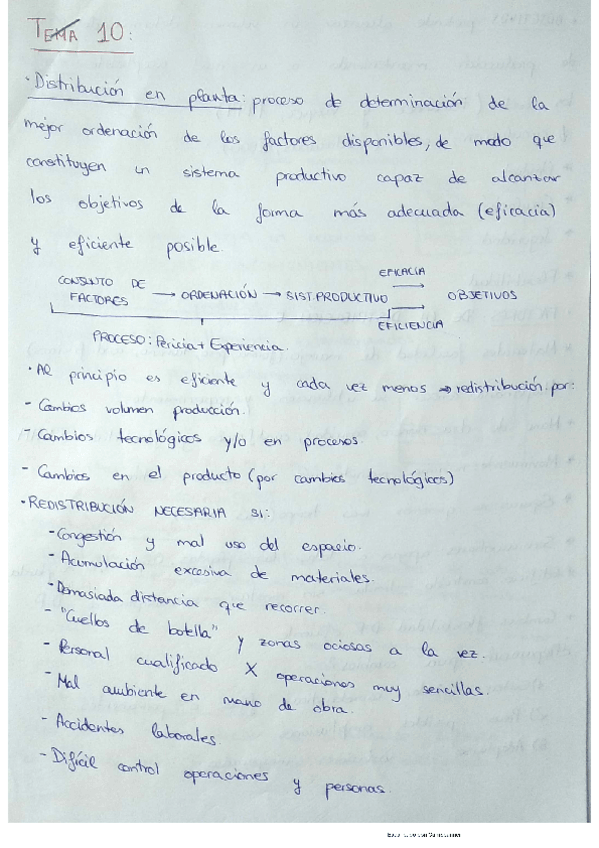 TEMA 10:
· Distribución en planta: proceso de determinación de la
mejor ordenación de los factores disponibles, de modo que
constituyen un sistema productivo capaz de alcanzar
los objetivos de la forma más adecuada (eficacia)
y eficiente posible.
CONJUNTO DE FACTORES → ORDENACIÓN → SIST. PRODUCTIVO → EFICACIA → EFICIENCIA OBJETIVOS
PROCESO: Pericia + Experiencia.
· Al principio es eficiente y cada vez menos → redistribución por:
- Cambios volumen producción.
- Cambios tecnológicos y/o en procesos.
- Cambios en el producto (por cambios tecnológicos)
· REDISTRIBUCIÓN NECESARIA SI:
- Congestión y mal uso del espacio.
- Acumulación excesiva de materiales.
- Demasiada distancia que recorrer.
- "Cuellos de botella" y zonas ociosas a la vez.
- Personal cualificado X operaciones muy sencillas.
- Mal ambiente en mano de obra.
- Accidentes laborales.
- Difícil control operaciones y personas.